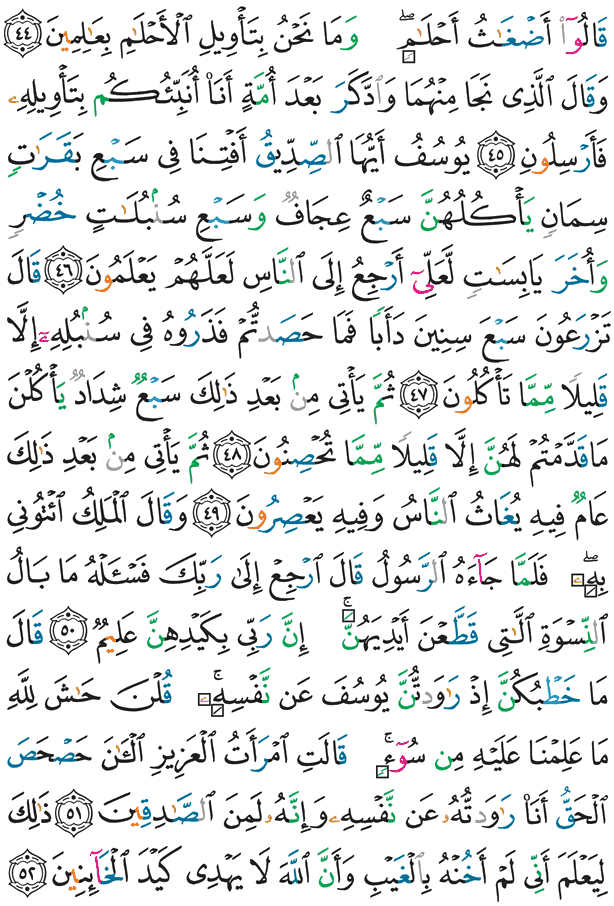 قَالُوٓا۟ أَضْغَـٰثُ أَحْلَـٰمٍۢ ۖ وَمَا نَحْنُ بِتَأْوِيلِ ٱلْأَحْلَـٰمِ بِعَـٰلِمِينَ ٤٤
وَقَالَ ٱلَّذِى نَجَا مِنْهُمَا وَٱدَّكَرَ بَعْدَ أُمَّةٍ أَنَا۠ أُنَبِّئُكُم بِتَأْوِيلِهِۦ
فَأَرْسِلُونِ ٤٥ يُوسُفُ أَيُّهَا ٱلصِّدِّيقُ أَفْتِنَا فِى سَبْعِ بَقَرَٰتٍۢ
سِمَانٍۢ يَأْكُلُهُنَّ سَبْعٌ عِجَافٌۭ وَسَبْعِ سُنۢبُلَـٰتٍ خُضْرٍۢ
وَأُخَرَ يَابِسَـٰتٍۢ لَّعَلِّىٓ أَرْجِعُ إِلَى ٱلنَّاسِ لَعَلَّهُمْ يَعْلَمُونَ ٤٦ قَالَ
تَزْرَعُونَ سَبْعَ سِنِينَ دَأَبًۭا فَمَا حَصَدتُّمْ فَذَرُوهُ فِى سُنۢبُلِهِۦٓ إِلَّا
قَلِيلًۭا مِّمَّا تَأْكُلُونَ ٤٧ ثُمَّ يَأْتِى مِنۢ بَعْدِ ذَٰلِكَ سَبْعٌۭ شِدَادٌۭ يَأْكُلْنَ
مَا قَدَّمْتُمْ لَهُنَّ إِلَّا قَلِيلًۭا مِّمَّا تُحْصِنُونَ ٤٨ ثُمَّ يَأْتِى مِنۢ بَعْدِ ذَٰلِكَ
عَامٌۭ فِيهِ يُغَاثُ ٱلنَّاسُ وَفِيهِ يَعْصِرُونَ ٤٩ وَقَالَ ٱلْمَلِكُ ٱئْتُونِى
بِهِۦ ۖ فَلَمَّا جَآءَهُ ٱلرَّسُولُ قَالَ ٱرْجِعْ إِلَىٰ رَبِّكَ فَسْـَٔلْهُ مَا بَالُ
ٱلنِّسْوَةِ ٱلَّـٰتِى قَطَّعْنَ أَيْدِيَهُنَّ ۚ إِنَّ رَبِّى بِكَيْدِهِنَّ عَلِيمٌۭ ٥٠ قَالَ
مَا خَطْبُكُنَّ إِذْ رَٰوَدتُّنَّ يُوسُفَ عَن نَّفْسِهِۦ ۚ قُلْنَ حَـٰشَ لِلَّهِ
مَا عَلِمْنَا عَلَيْهِ مِن سُوٓءٍۢ ۚ قَالَتِ ٱمْرَأَتُ ٱلْعَزِيزِ ٱلْـَٔـٰنَ حَصْحَصَ
ٱلْحَقُّ أَنَا۠ رَٰوَدتُّهُۥ عَن نَّفْسِهِۦ وَإِنَّهُۥ لَمِنَ ٱلصَّـٰدِقِينَ ٥١ ذَٰلِكَ
لِيَعْلَمَ أَنِّى لَمْ أَخُنْهُ بِٱلْغَيْبِ وَأَنَّ ٱللَّهَ لَا يَهْدِى كَيْدَ ٱلْخَآئِنِينَ ٥٢